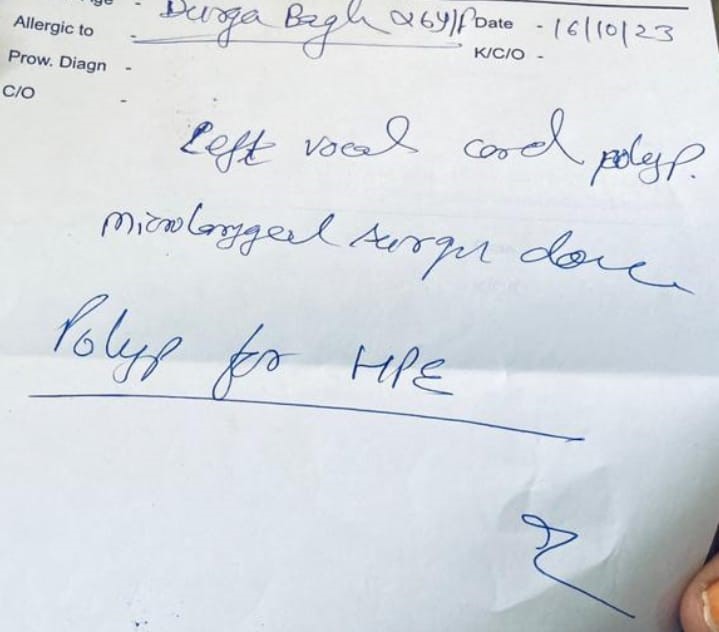 Durga Bagh 26y/F Date - 16/10/23
Allergic to -
K/C/O -
Prow. Diagn -
C/O -
Left vocal cord polyp.
Microlaryngeal surgery done
Polyp for HPE